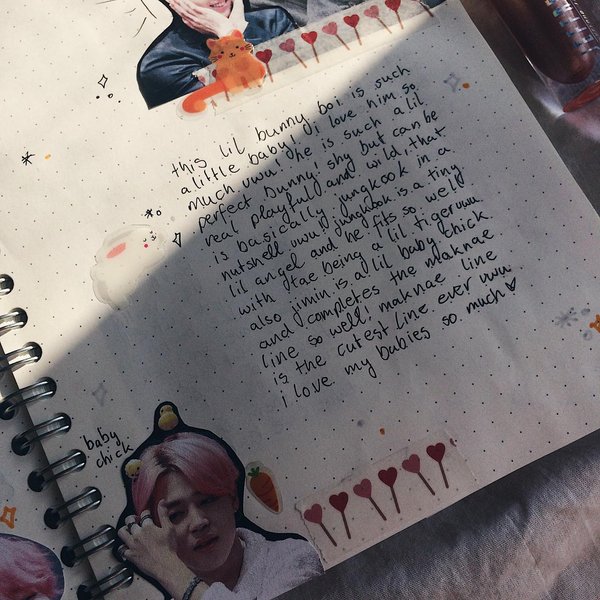 this lil bunny boi is such
a little baby! i love him so
much uwu! he is such a lil
perfect bunny! shy but can be
real playful and wild, that
is basically jungkook in a
nutshell uwu! jungkook is a tiny
lil angel and he fits so well
with tae being a lil tiger uwu
also jimin is a lil baby chick
and completes the maknae
line so well! maknae line
is the cutest line ever uwu
i love my babies so much
baby
chick